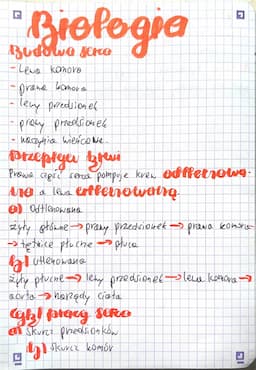 Biologia
Budowa serca
- Lewa komora
- prawa komora
- lewy przedsionek
- prawy przedsionek
- naczynia wieńcowe
Przepływ krwi
Prawa część serca pompuje krew odtlenowa-
ną a lewa utlenowaną.
a) Odtlenowana
żyły główne → prawy przedsionek → prawa komora
→ tętnice płucne → płuca
b) utlenowana
żyły płucne → lewy przedsionek → lewa komora →
aorta → narządy ciała
Cykl pracy serca
a) skurcz przedsionków
b) skurcz komór